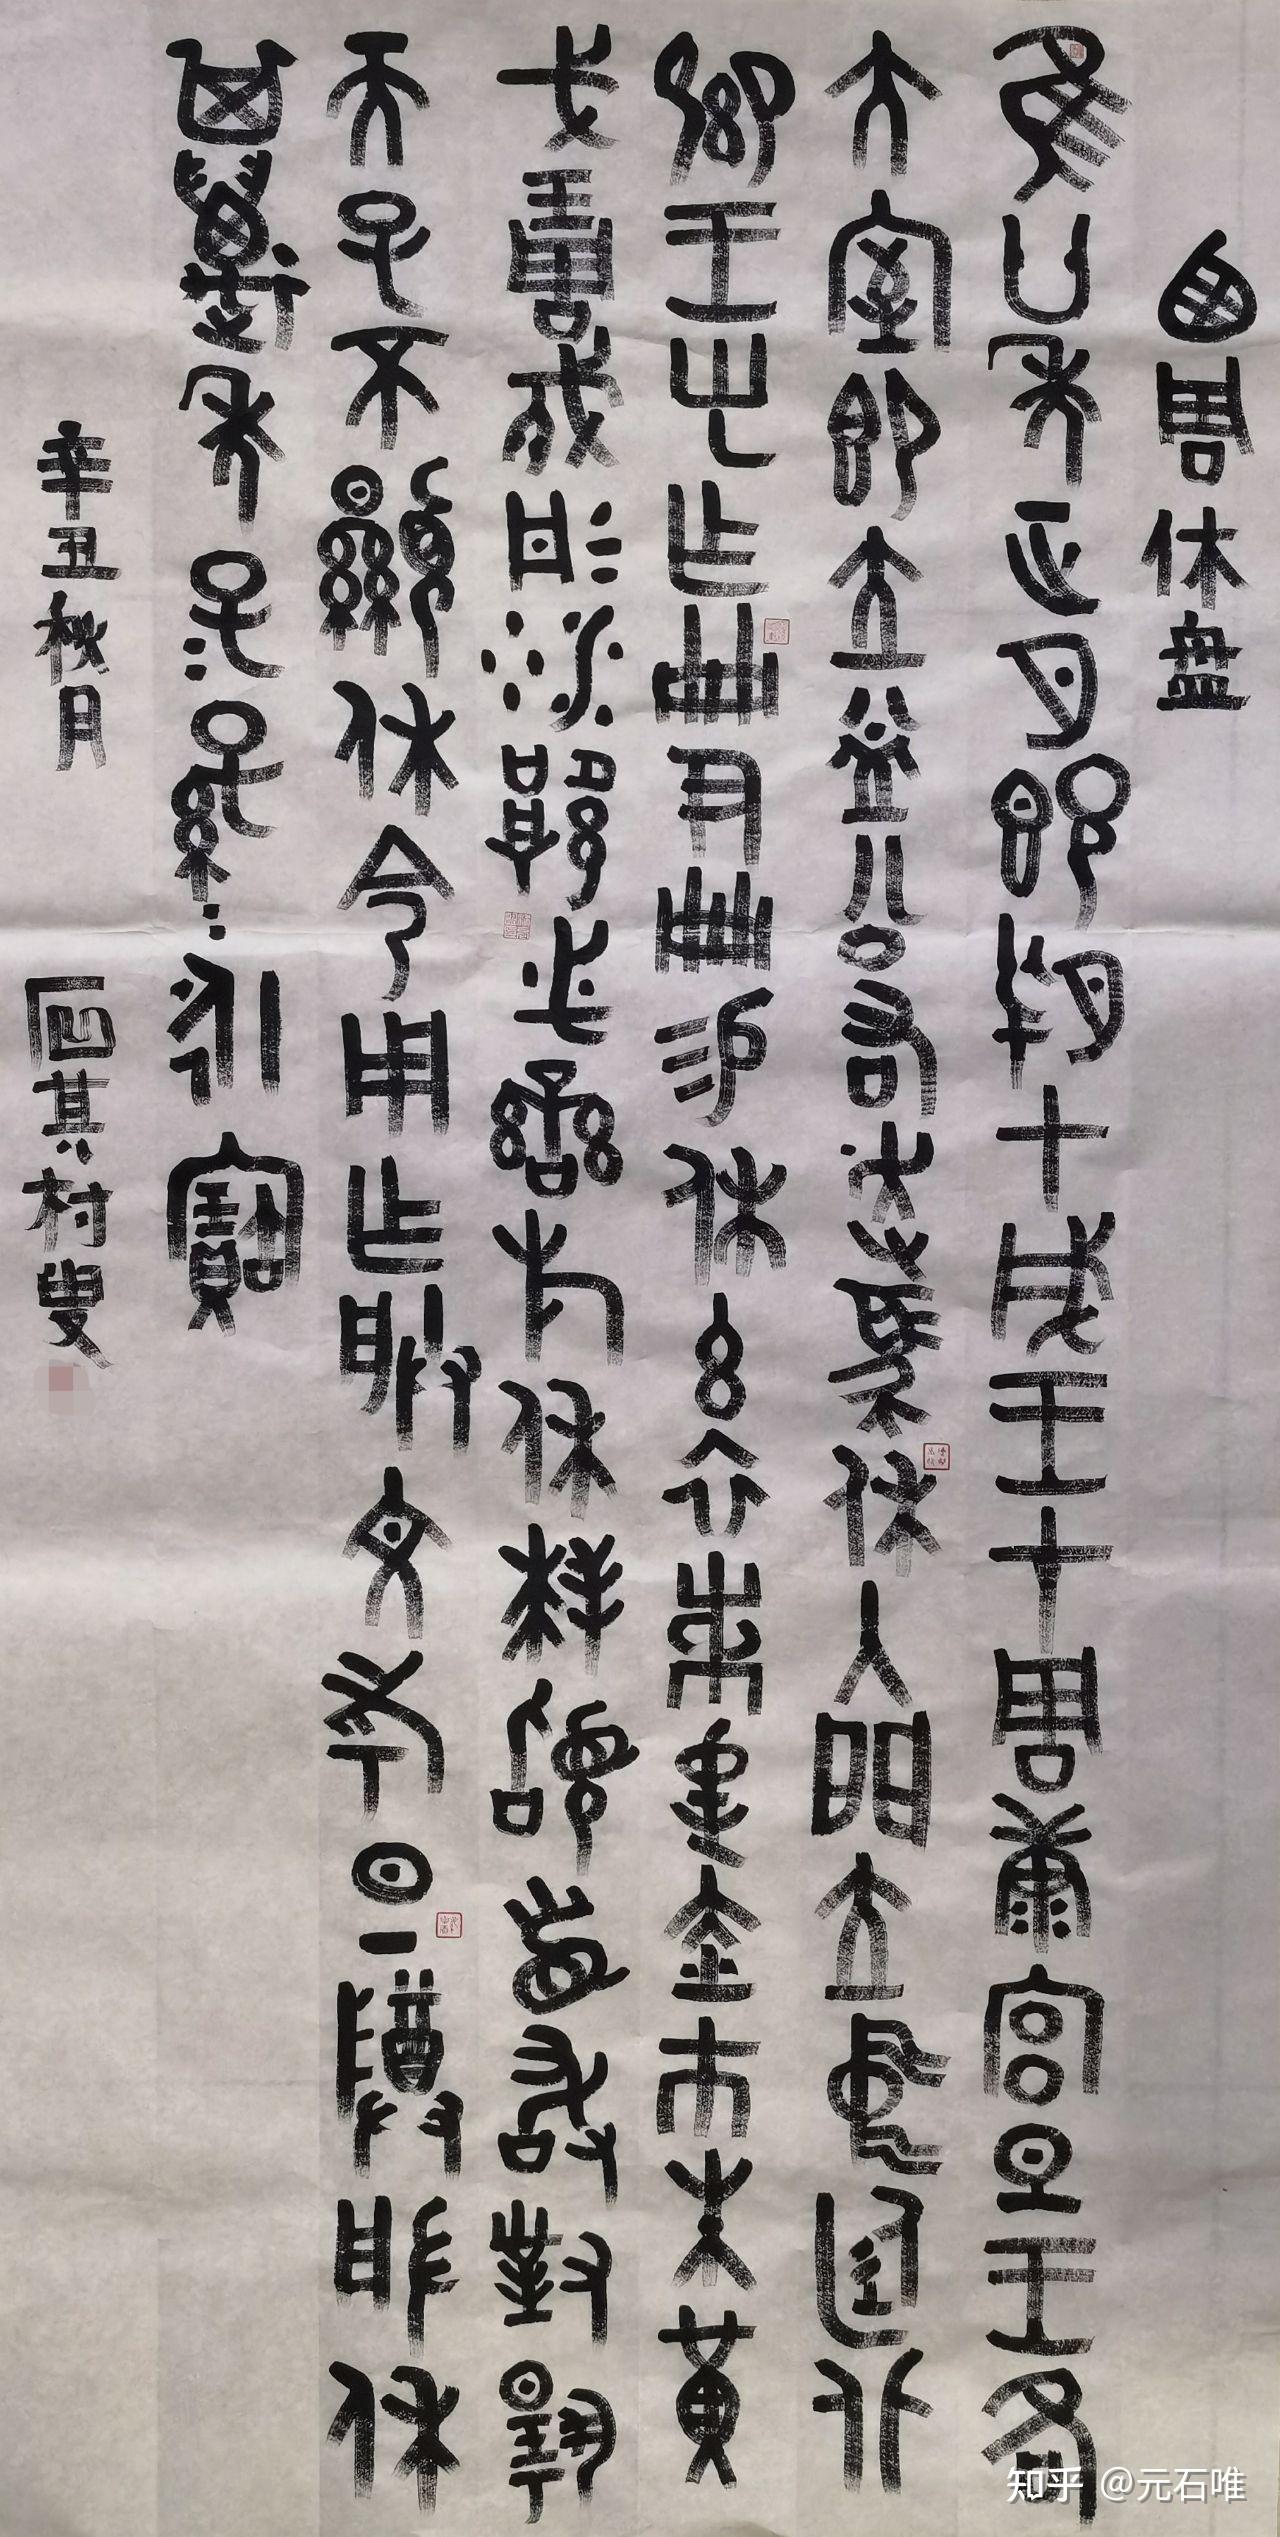 西周休盘
隹廿年正月既望甲戌王才周康宫旦王各
大室即立益公右走馬休入門立中廷北
鄉王乎乍冊尹冊易休玄衣黹屯赤巿朱黄
戈琱㦸彤沙厚必鑾㫃休拜稽首敢對揚
天子不顯休令用乍朕文考日丁尊般休
其萬年子子孫孫永寶
辛丑秋月 其村叟
知乎 @元石唯